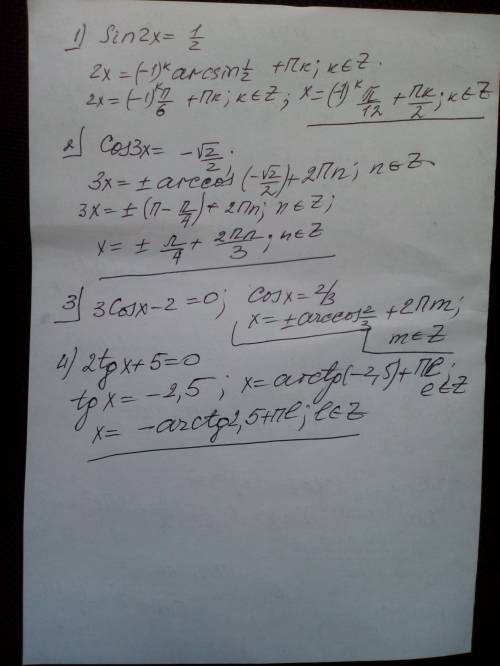 1) Sin2x = 1/2
2x = (-1)^k arcsin 1/2 + πk; k∈Z.
2x = (-1)^k π/6 + πk; k∈Z; x = (-1)^k π/12 + πk/2; k∈Z
2) Cos3x = -√2/2;
3x = ± arccos(-√2/2) + 2πn; n∈Z
3x = ± (π - π/4) + 2πn; n∈Z;
x = ± π/4 + 2πn/3; n∈Z
3) 3Cosx - 2 = 0; Cosx = 2/3
x = ± arccos 2/3 + 2πm;
m∈Z
4) 2tgx + 5 = 0
tgx = -2,5; x = arctg(-2,5) + πl;
l∈Z
x = -arctg2,5 + πl; l∈Z